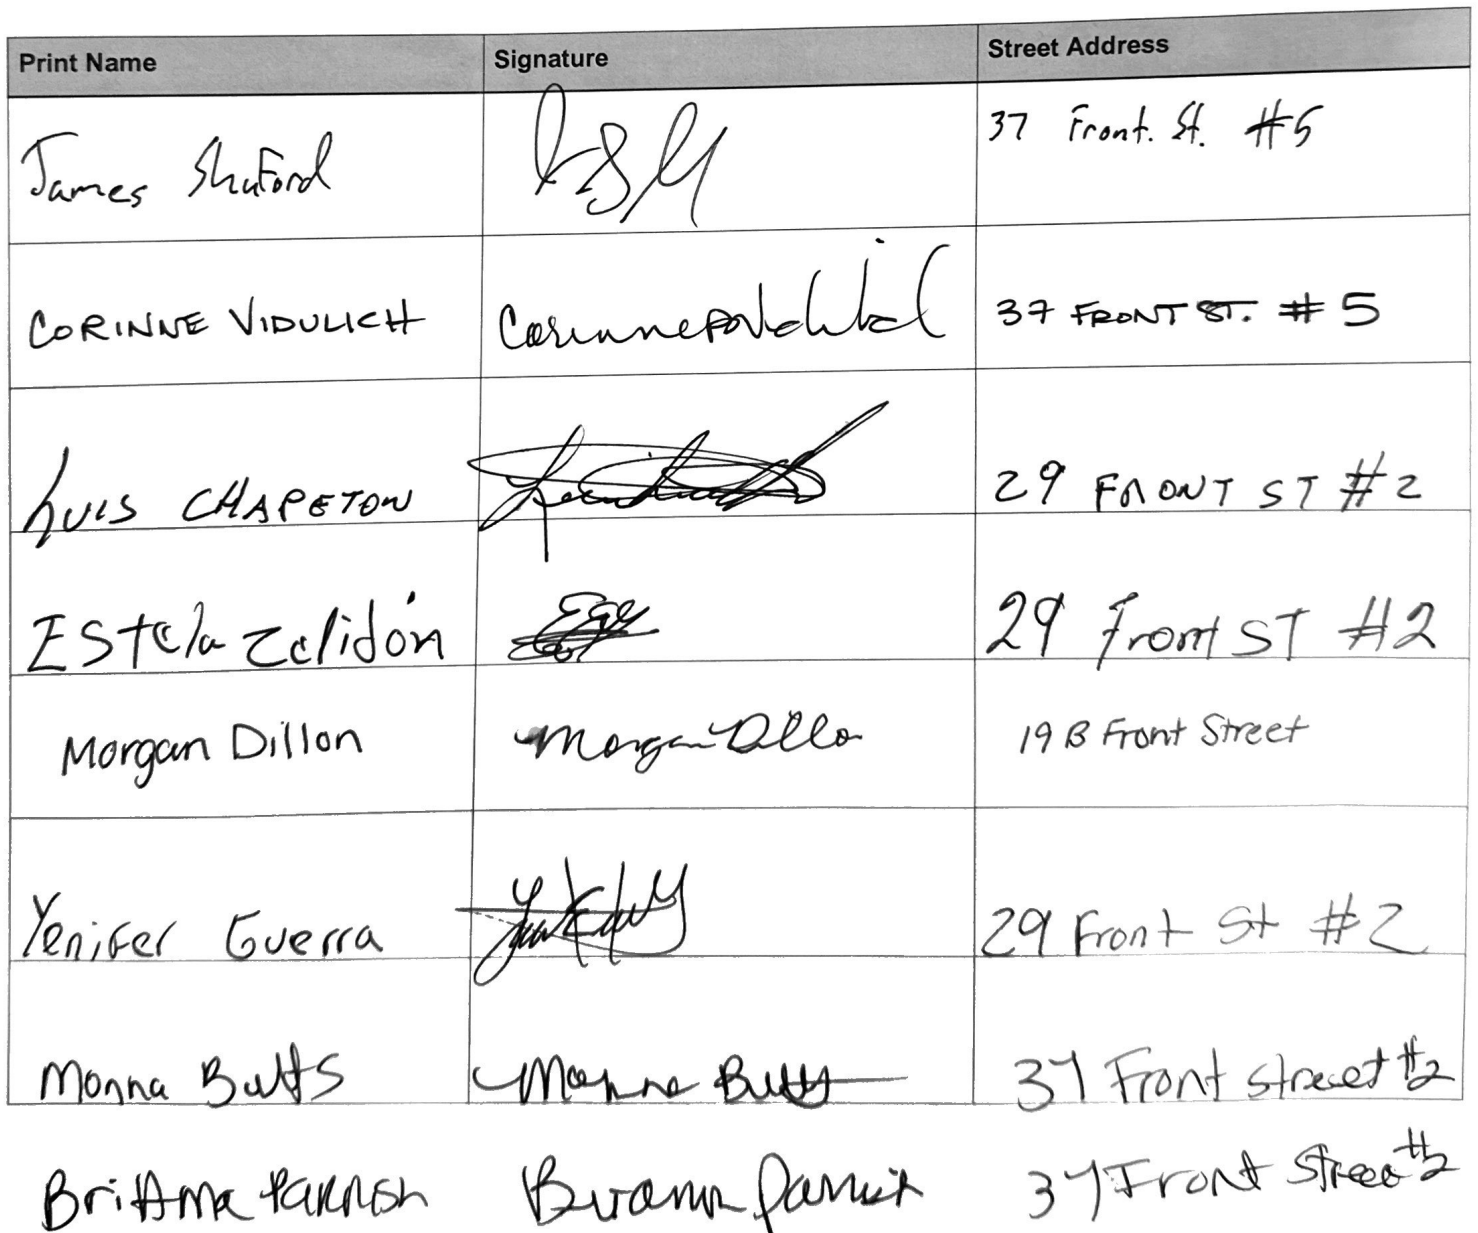 Print Name Signature Street Address
James Shuford 37 Front. St. #5
CORINNE VIDULICH 37 FRONT ST. #5
Luis CHAPETON 29 FRONT ST #2
EStela Zelidón 29 Front ST #2
Morgan Dillon Morgan Dillo 19 B Front Street
Yenifer Guerra 29 Front St #2
Monna Butts Monna Butts 37 Front street #2
Parrish 37 Front Street #2